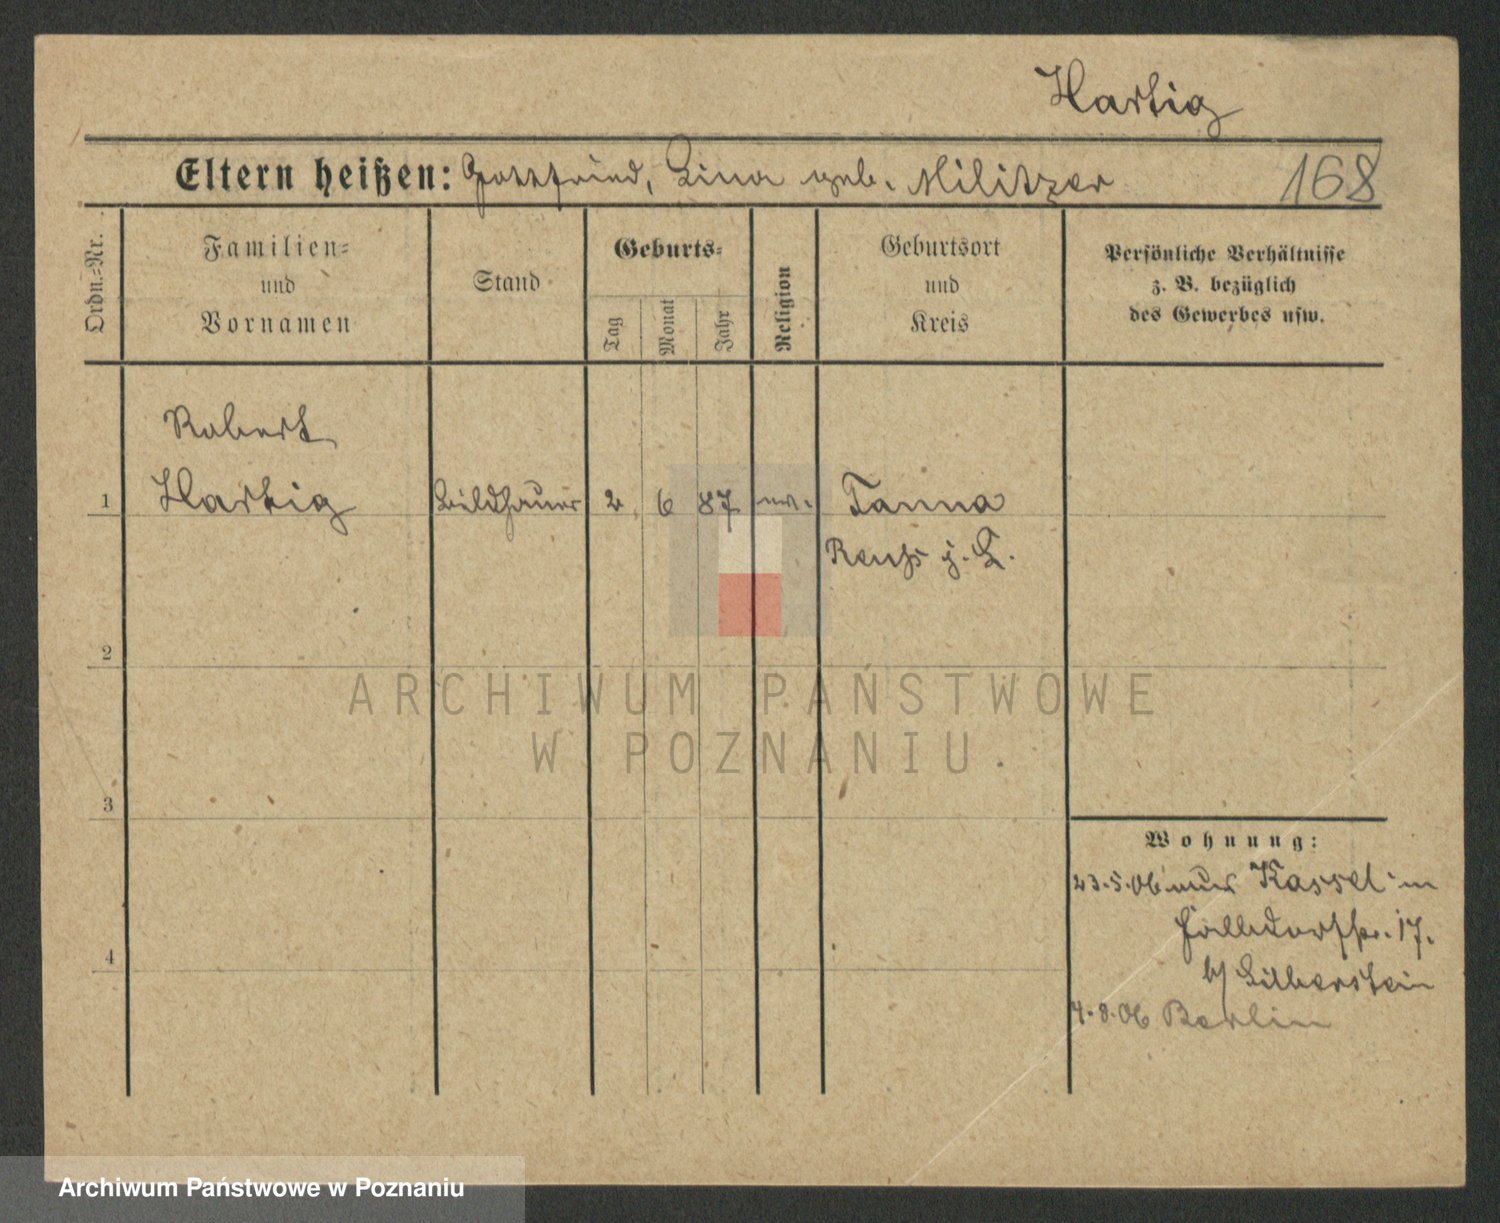 Hartig
Eltern heißen: Gottfried, Lina geb. Militzer
168
Ordn.-Nr.
Familien-
und
Vornamen
Stand
Geburts-
Tag
Monat
Jahr
Religion
Geburtsort
und
Kreis
Persönliche Verhältnisse
z. B. bezüglich
des Gewerbes usw.
Robert
1 Hartig Bildhauer 2 6 87 ev. Tanna
Reuß j. L.
2
3
4
Wohnung:
23.5.06 aus Kassel in
17.
b/ Silberstein
4.8.06 Berlin
ARCHIWUM PAŃSTWOWE
W POZNANIU.
Archiwum Państwowe w Poznaniu